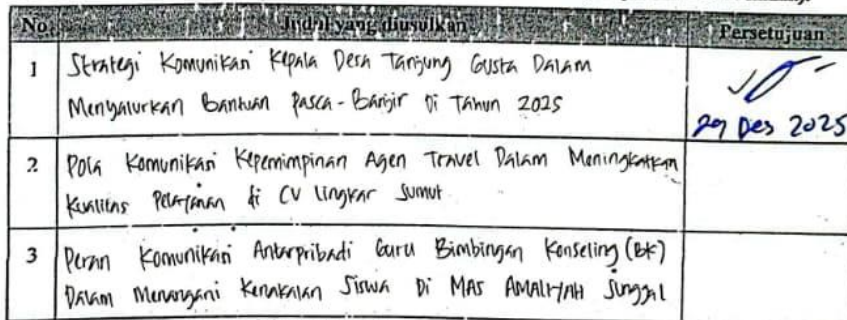 No. Judul yang diusulkan Persetujuan
1 Strategi Komunikasi Kepala Desa Tanjung Gusta Dalam
Menyalurkan Bantuan Pasca-Banjir Di Tahun 2025
29 Des 2025
2 Pola Komunikasi Kepemimpinan Agen Travel Dalam Meningkatkan
Kualitas Pelayanan di CV Lingkar Sumut
3 Peran Komunikasi Antarpribadi Guru Bimbingan Konseling (BK)
Dalam Menangani Kenakalan Siswa Di MAS AMALIYAH Sunggal